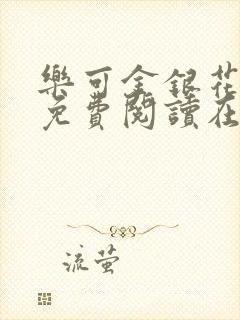 樂可金銀花
免費閱讀在
流螢